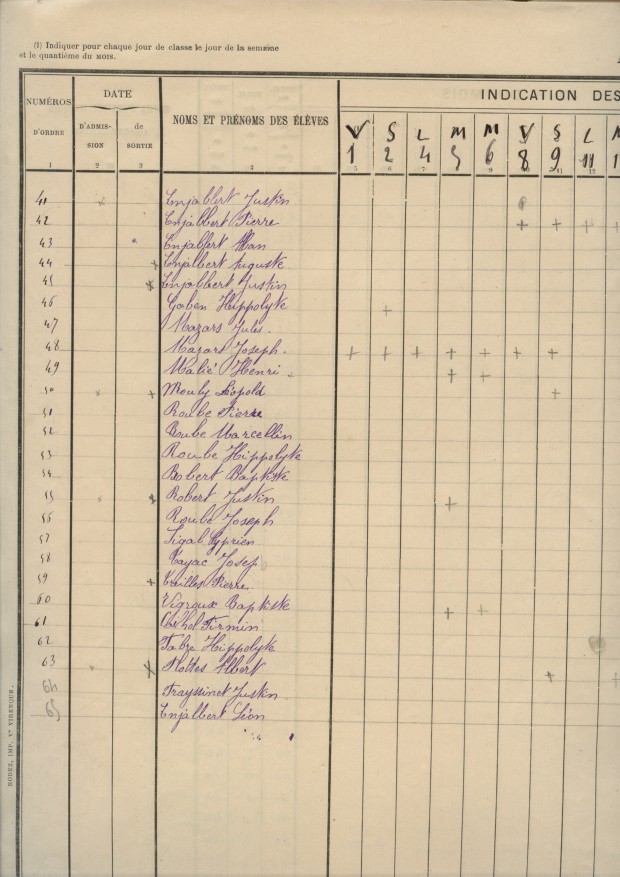 (1) Indiquer pour chaque jour de classe le jour de la semaine
et le quantième du MOIS.
NUMÉROS D'ORDRE
DATE
D'ADMISSION
de SORTIE
NOMS ET PRÉNOMS DES ÉLÈVES
INDICATION DES
V S L M M V S L M
1 2 4 5 6 8 9 11 1
1 2 3 4 5 6 7 8 9 10 11 12
41 Enjalbert Justin
42 Enjalbert Pierre + + + +
43 Enjalbert
44 + Enjalbert Auguste
45 + Enjalbert Justin
46 Gaben Hippolyte +
47 Mazars Jules.
48 Mazars Joseph. + + + + + + +
49 Malié Henri + +
50 + Mouly Léopold +
51 Roube Pierre
52 Roube Marcellin
53 Roube Hippolyte
54 Robert Baptiste
55 + Robert Justin +
56 Roube Joseph
57 Sigal Cyprien
58 Tayac Josep
59 + Treilles Pierre
60 Vigroux Baptiste + +
61 Firmin
62 Fabre Hippolyte
63 + Nottes Albert + +
64 Frayssinet Justin
65 Enjalbert Léon
RODEZ, IMP. Vᵉ VIRENQUE.